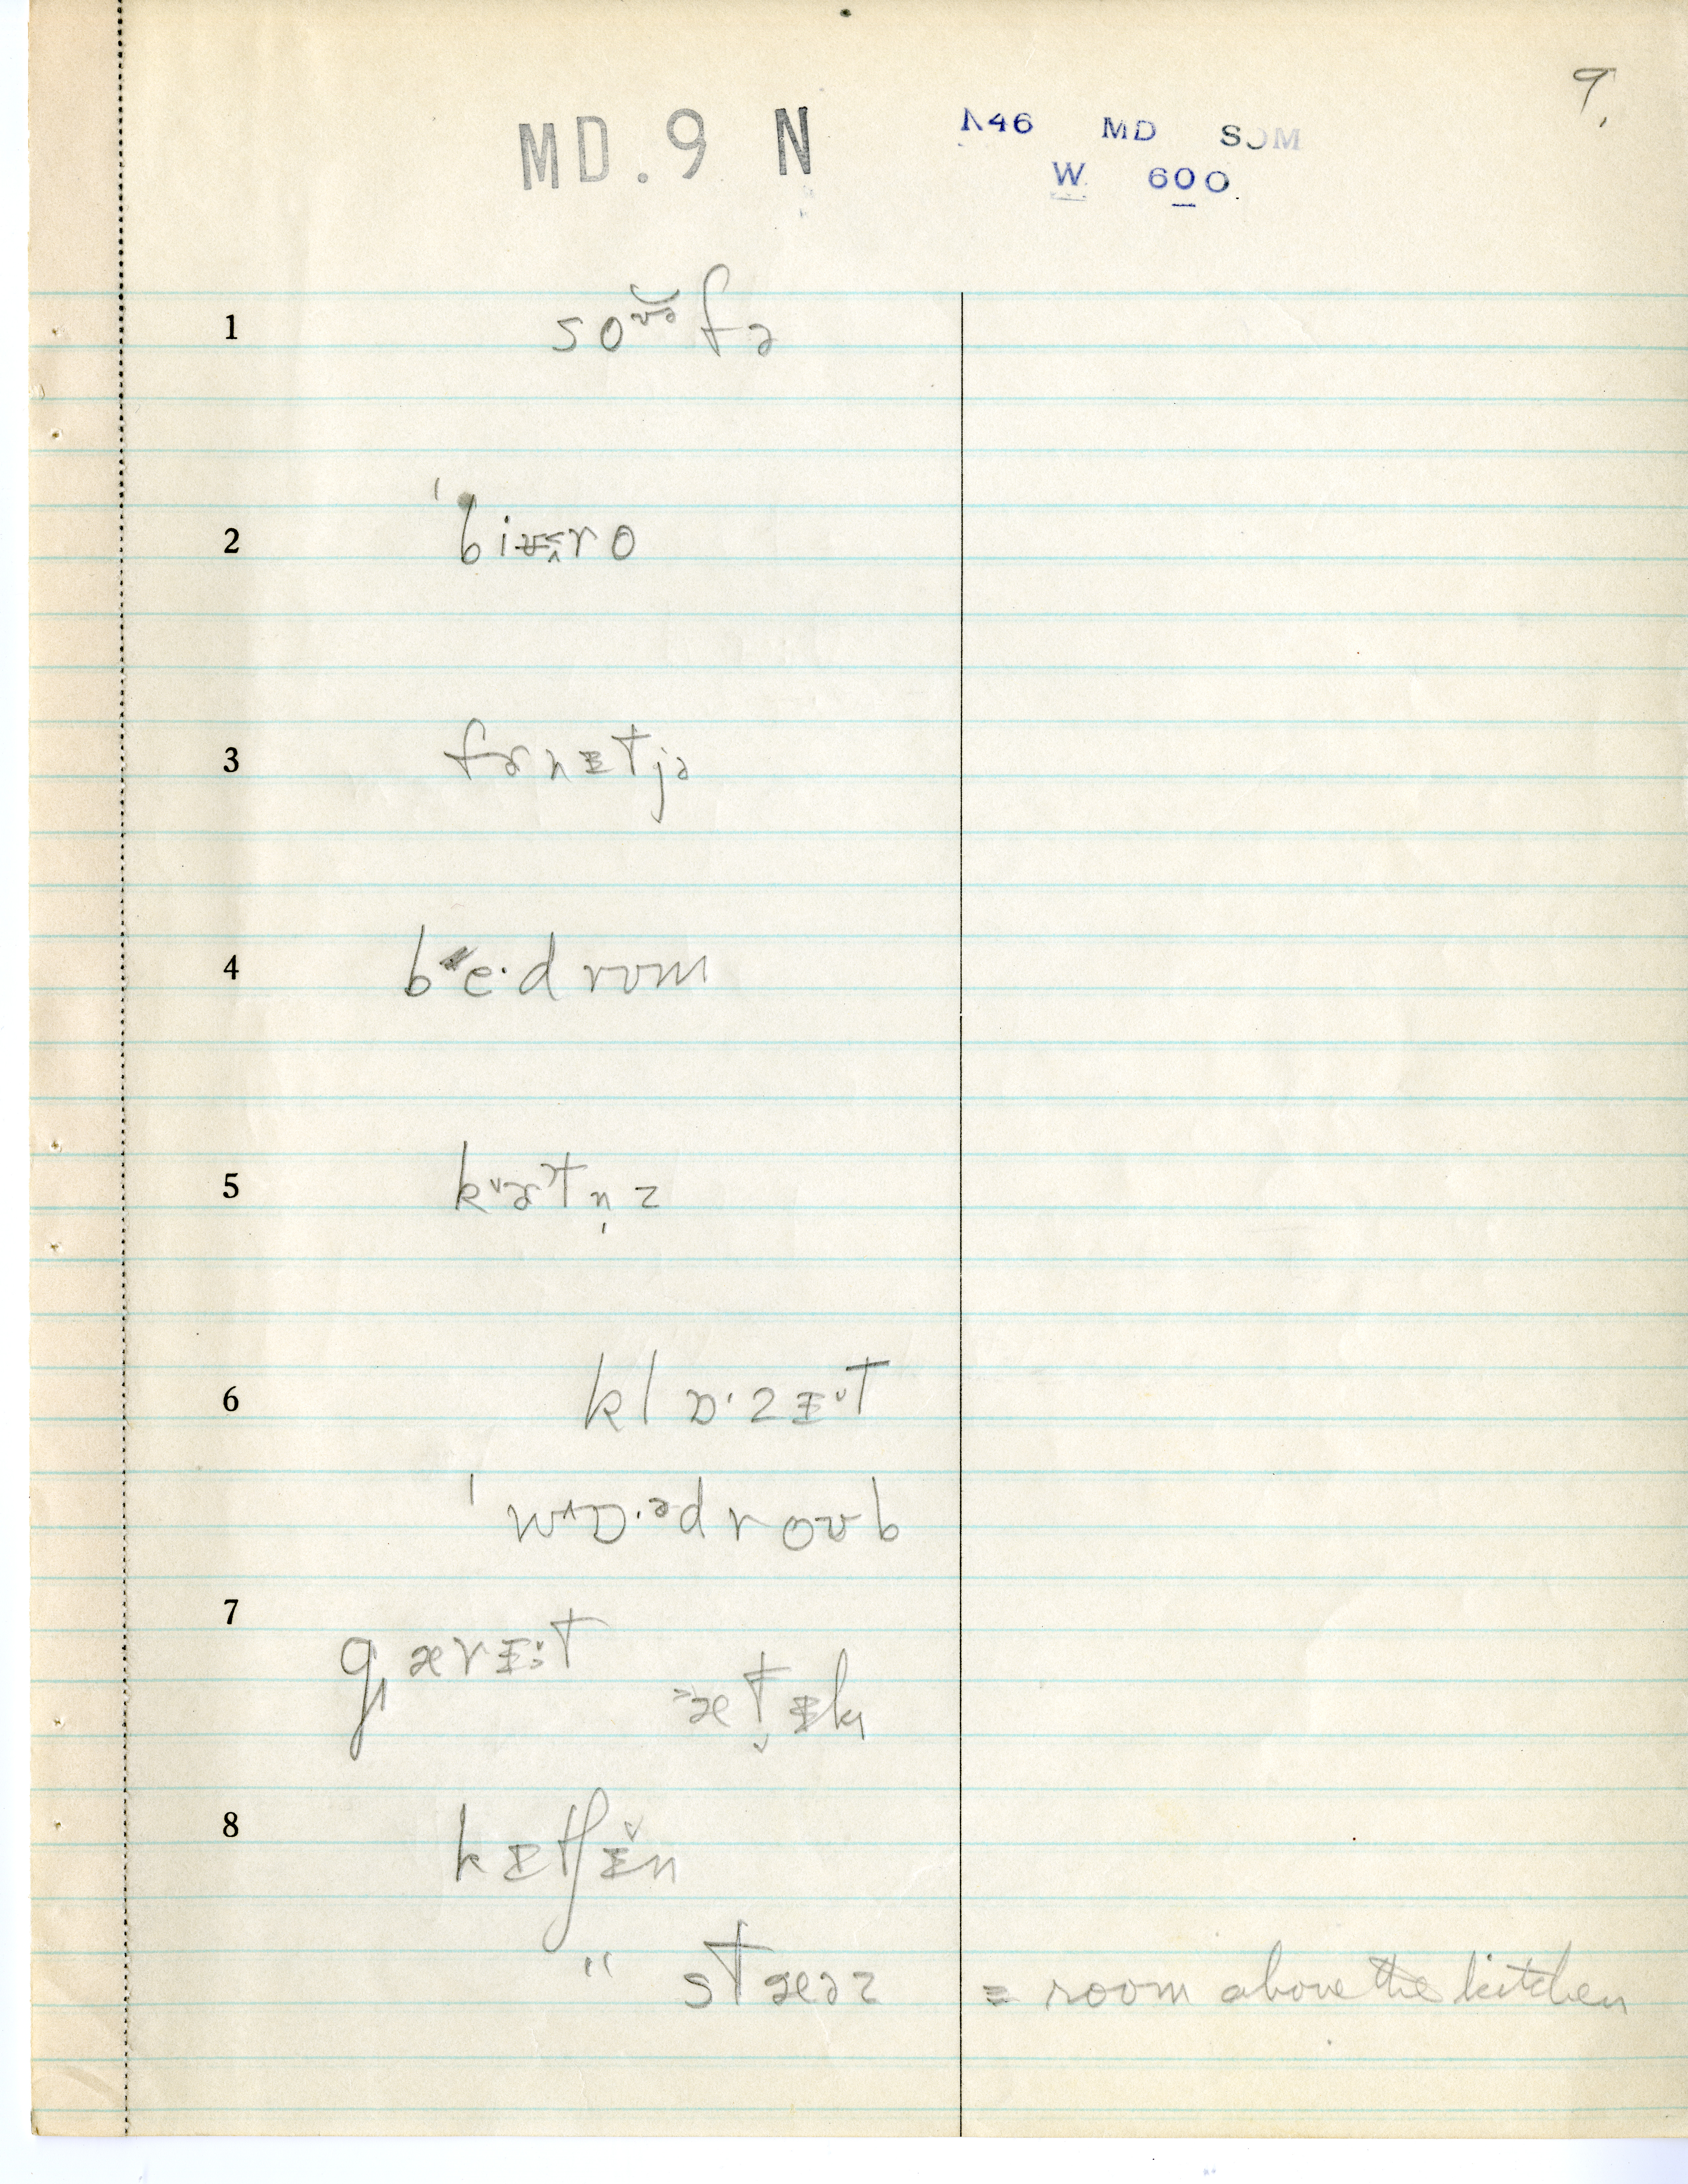 9.
MD. 9 N
N46 MD SOM
W 600
1 soᶷᵊfə
2 ˈbiʊrro
3 fɚnɪtjə
4 be·drʊm
5 kɚtn̩z
6 klɒ·zɪt
ˈwɒ·ᵊdroʊb
7 gærɪt
ætɪk
8 kɪtʃɪn
" stæəz = room above the kitchen